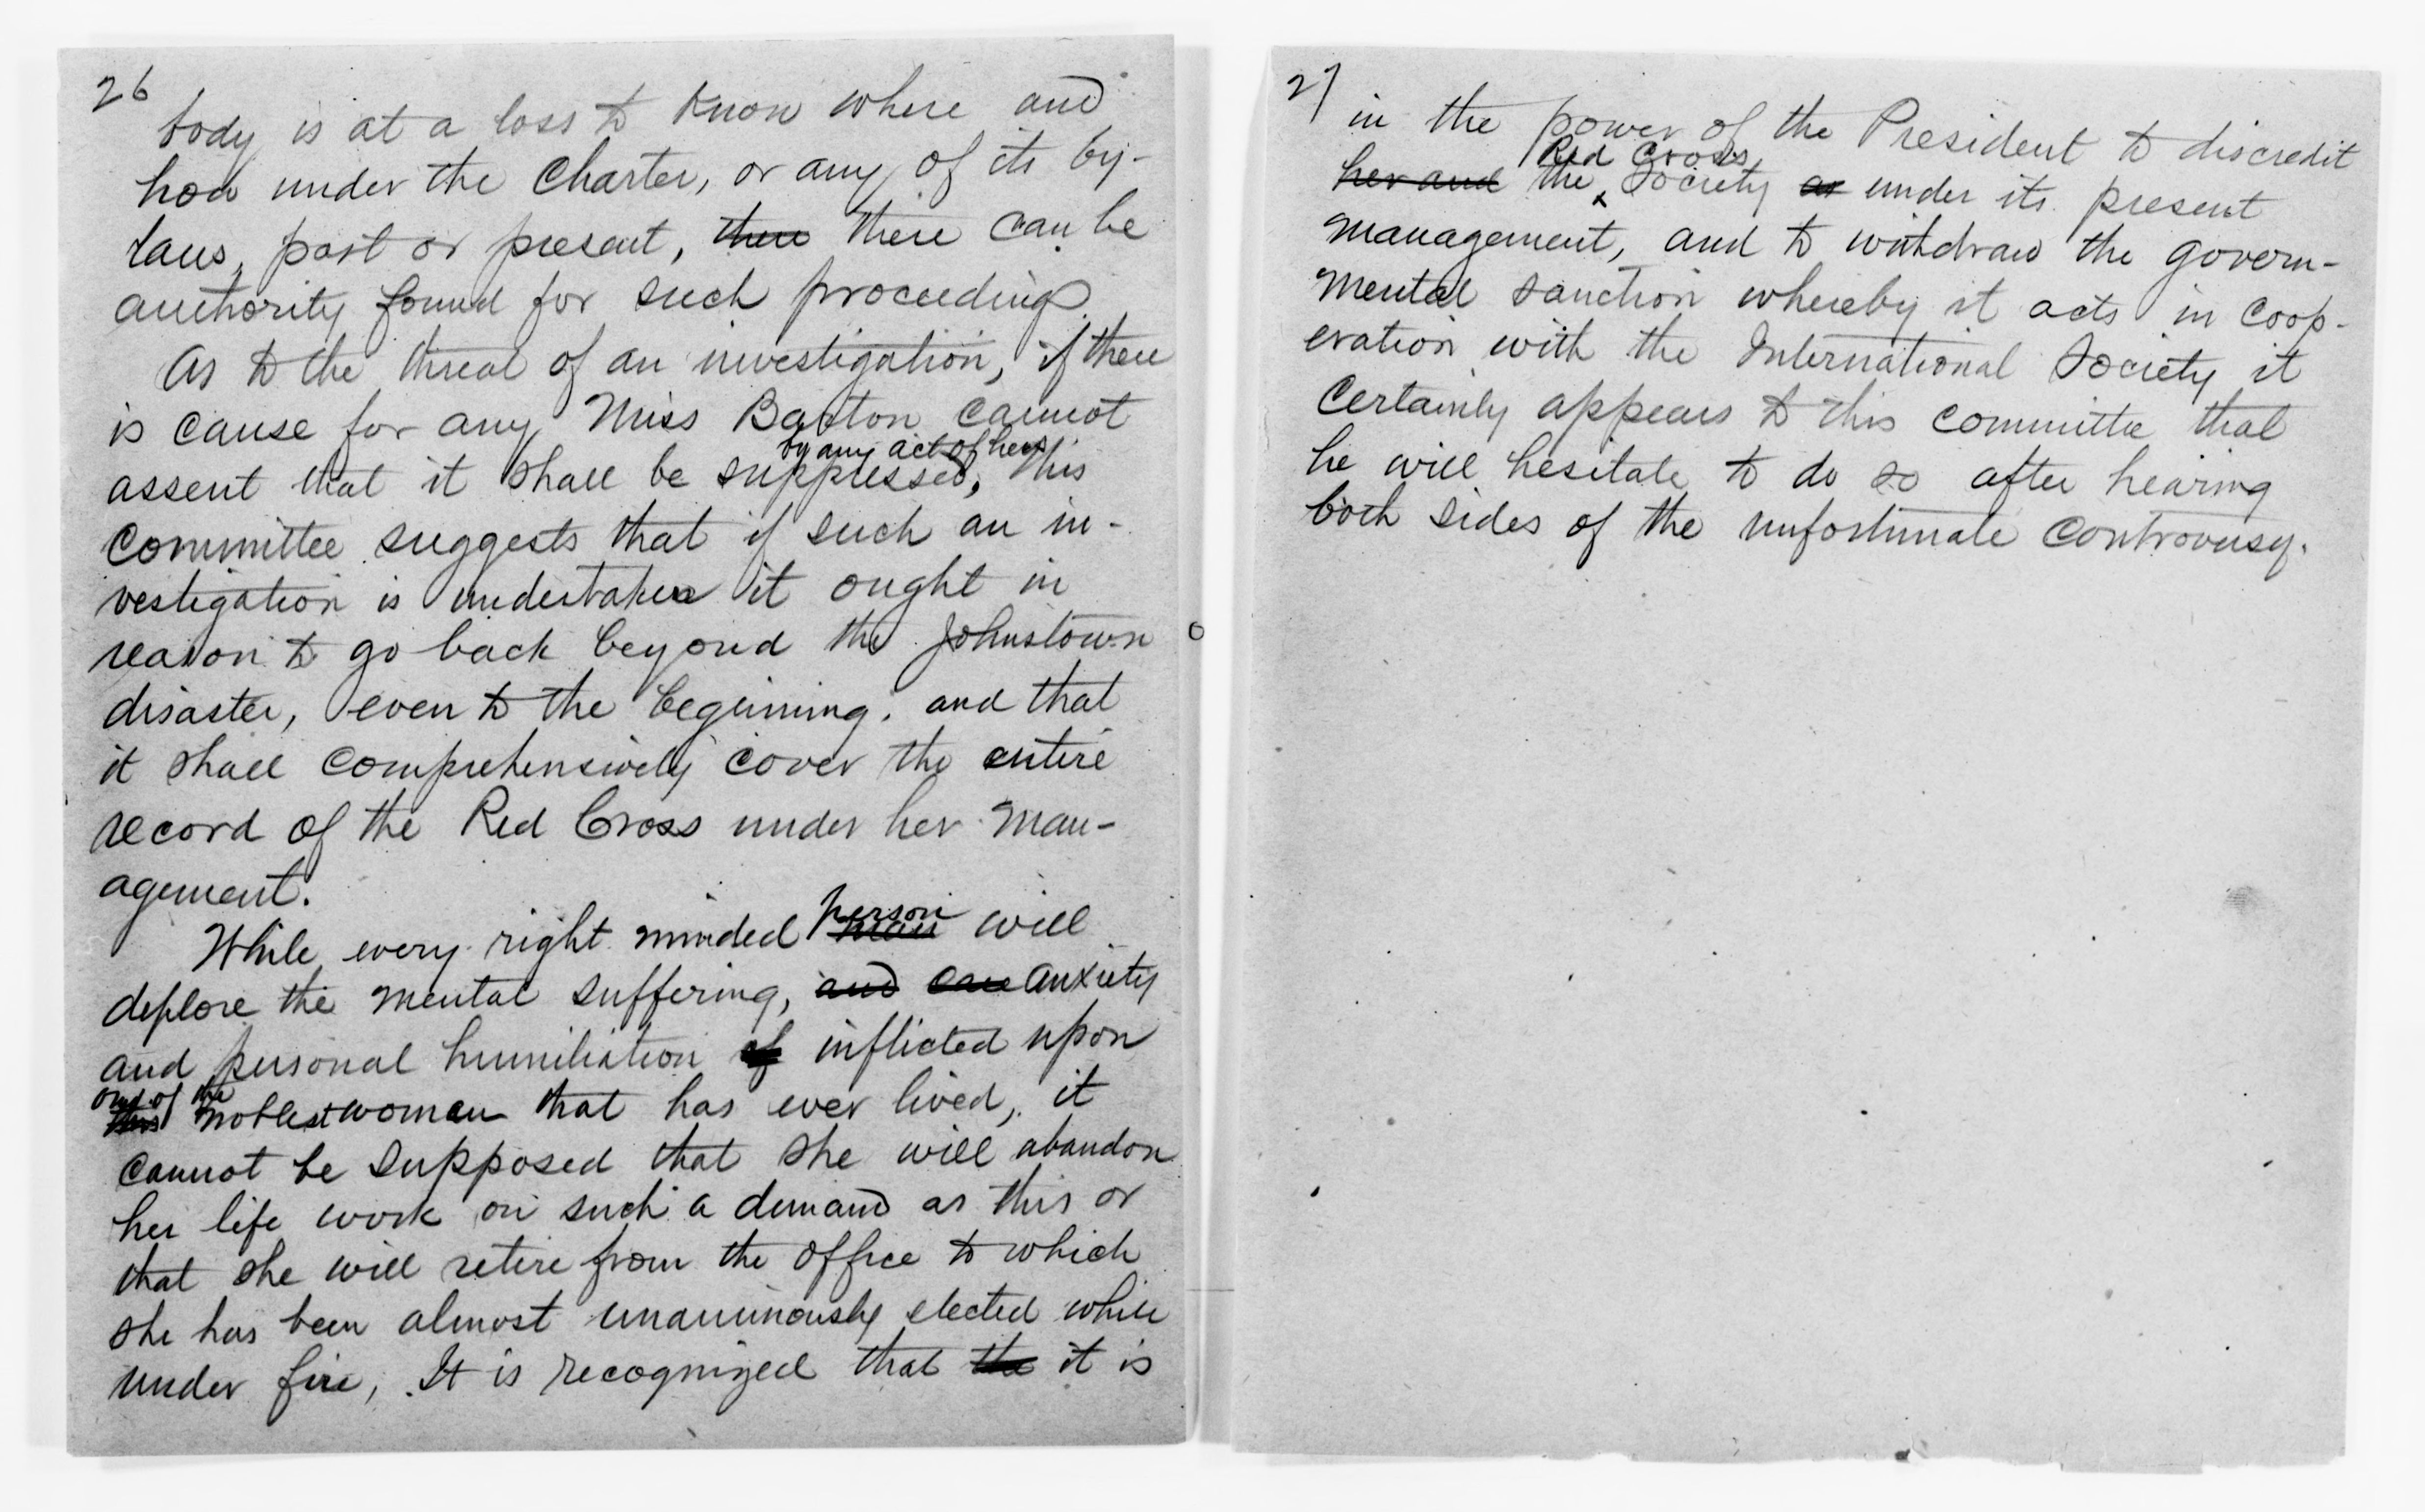 26
body is at a loss to know where and
how under the Charter, or any of its by-
laws, past or present, there there can be
authority found for such proceeding.
As to the threat of an investigation, if there
is cause for any Miss Barton cannot
by any act of hers
assent that it shall be suppressed, This
Committee suggests that if such an in-
vestigation is undertaken it ought in
reason to go back beyond the Johnstown
disaster, even to the begining, and that
it shall comprehensively cover the entire
record of the Red Cross under her man-
agement.
person
While every right minded man will
deplore the mental suffering, and care anxiety
and personal humiliation of inflicted upon
one of the
this noblest women that has ever lived, it
cannot be supposed that she will abandon
her life work on such a demand as this or
that she will retire from the office to which
she has been almost unanimously elected while
under fire, It is recognized that the it is
27
in the power of the President to discredit
Red Cross
her and the Society as under its present
management, and to withdraw the govern-
mental sanction whereby it acts in coop-
eration with the International Society it
Certainly appears to this committee that
he will hesitate to do so after hearing
both sides of the unfortunate controversy.